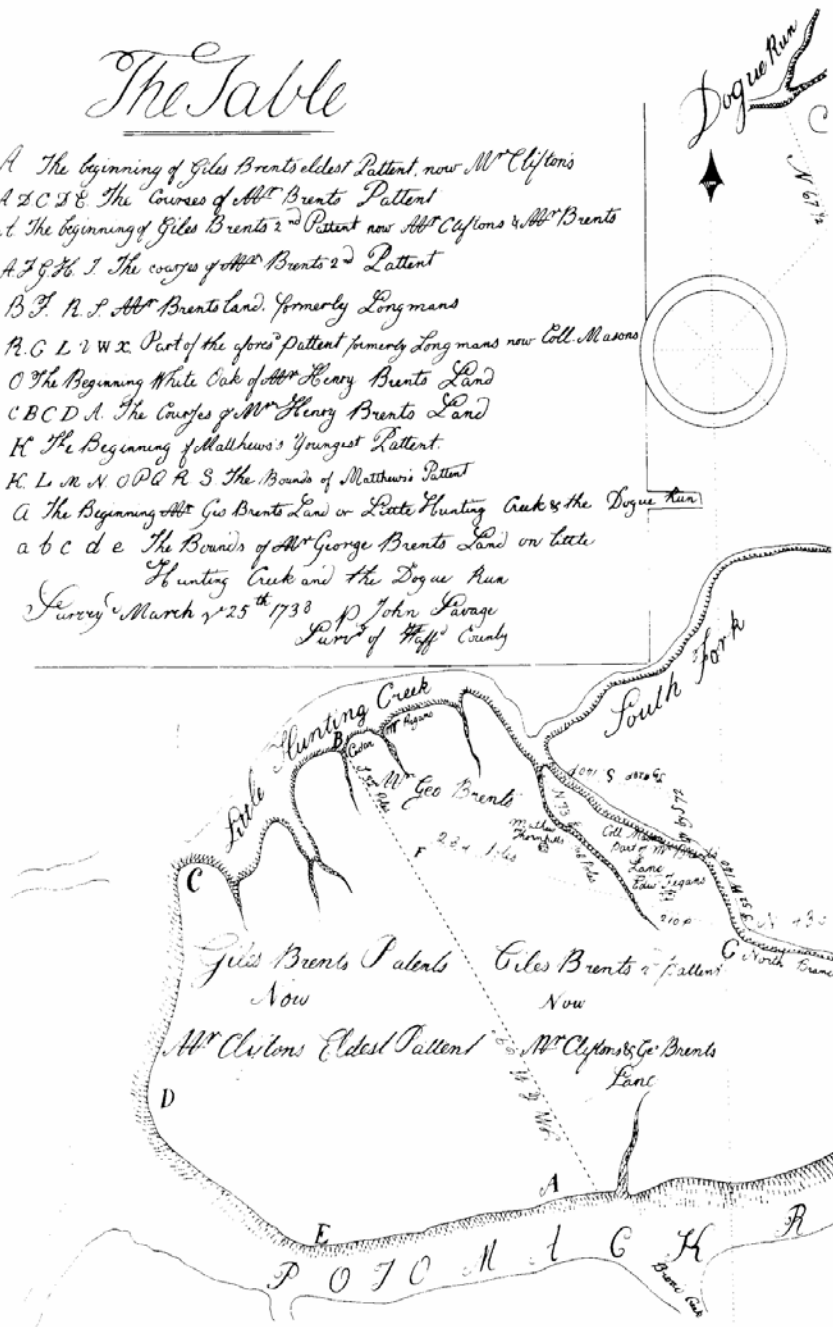 The Table
A The beginning of Giles Brents eldest Pattent, now Mr Cliftons
A B C D E. The Courses of Mr Brents Pattent
The beginning of Giles Brents 2nd Pattent now Mr Cliftons & Mr Brents
A. F G. H. I. The courses of Mr Brents 2d Pattent
B F. R. S. Mr Brents land, formerly Longmans
R. G L V W X. Part of the afores'd pattent formerly Longmans now Coll. Masons
O The Beginning White Oak of Mr Henry Brents Land
C B C D A. The Courses of Mr Henry Brents Land
K The Beginning of Matthews's Youngest Pattent.
K. L. M N. O P Q R S. The Bounds of Matthews's Pattent
a The Beginning Mr Geo Brents Land on Little Hunting Creek & the Dogue Run
a b c d e The Bounds of Mr George Brents Land on little
Hunting Creek and the Dogue Run
March ye 25th 1738 p John Savage
Survr of Staffd County
Dogue Run
C
N 67 1/2
South Fork
Little Hunting Creek
B
Cedar
Mr
Mr Geo Brents
F
Mathew
Thornhills
N 73
Poles
Coll
part of Mr
Land
Edw
210 P
G
North Branc
C
Giles Brents Patents
Now
Mr Cliftons Eldest Pattent
Giles Brents 2d pattent
Now
Mr Cliftons & Geo Brents
Land
D
A
E
POTOMACK R
Creek